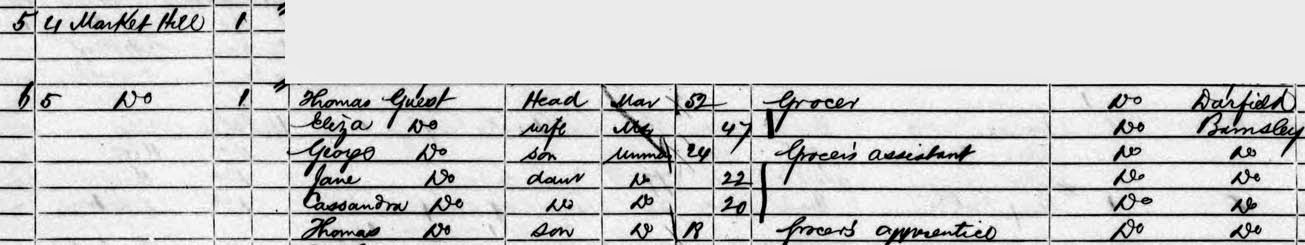 5 4 Market Hill 1
6 5 Do 1 Thomas Guest Head Mar 52 Grocer Do Darfield
Eliza Do wife Mar 47 Do Barnsley
George Do son Unmar 24 Grocers assistant Do Do
Jane Do daur Do 22 Do Do
Cassandra Do Do Do 20 Do Do
Thomas Do son Do 18 Grocers apprentice Do Do